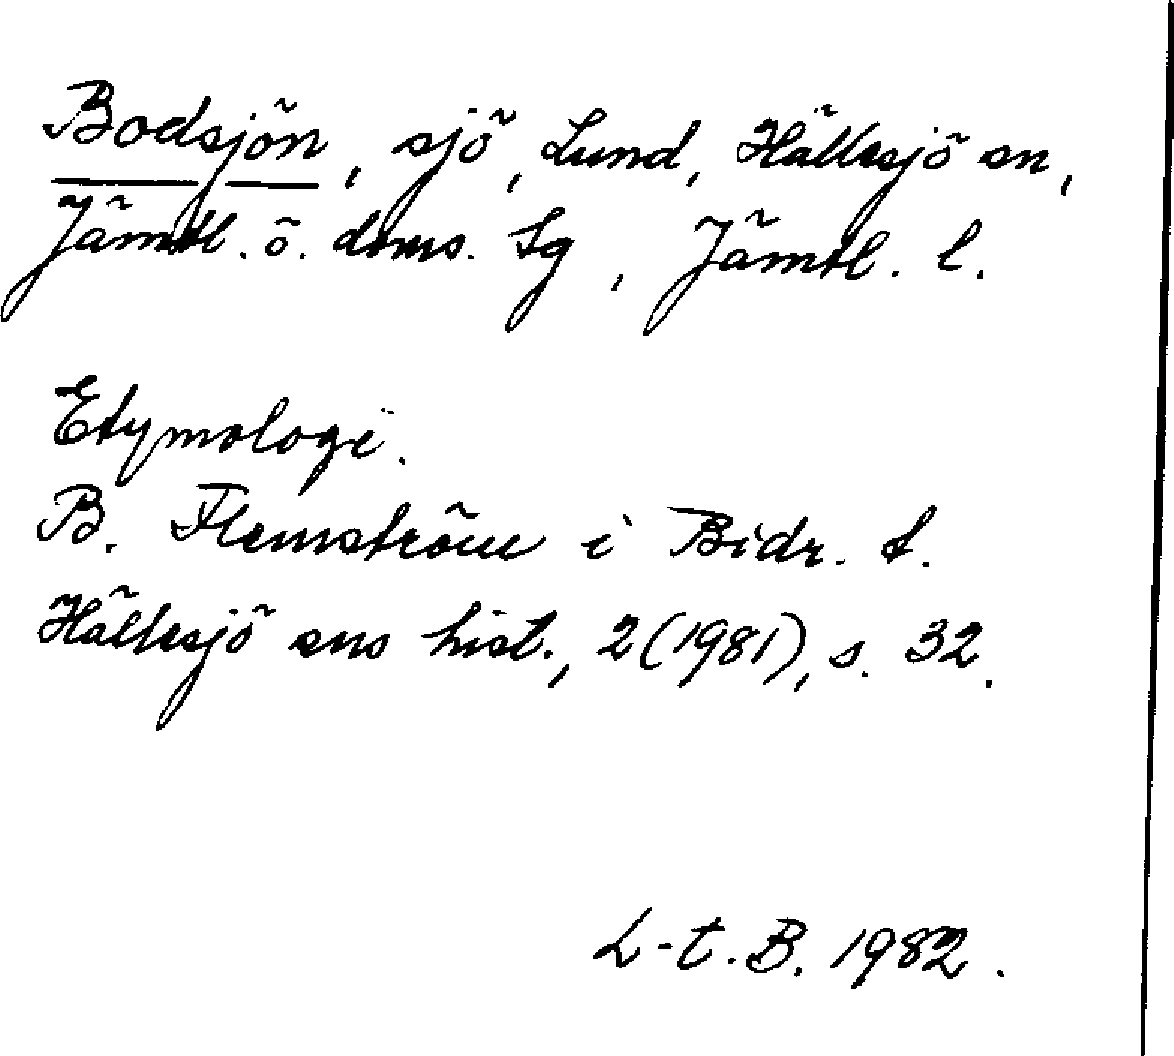 Bodsjön, sjö, Lund, Hällesjö sn,
Jämtl. ö. doms. tg, Jämtl. l.
Etymologi.
B. Flemström i Bidr. t.
Hällesjö sns hist., 2(1981), s. 32.
L-t. B. 1982.